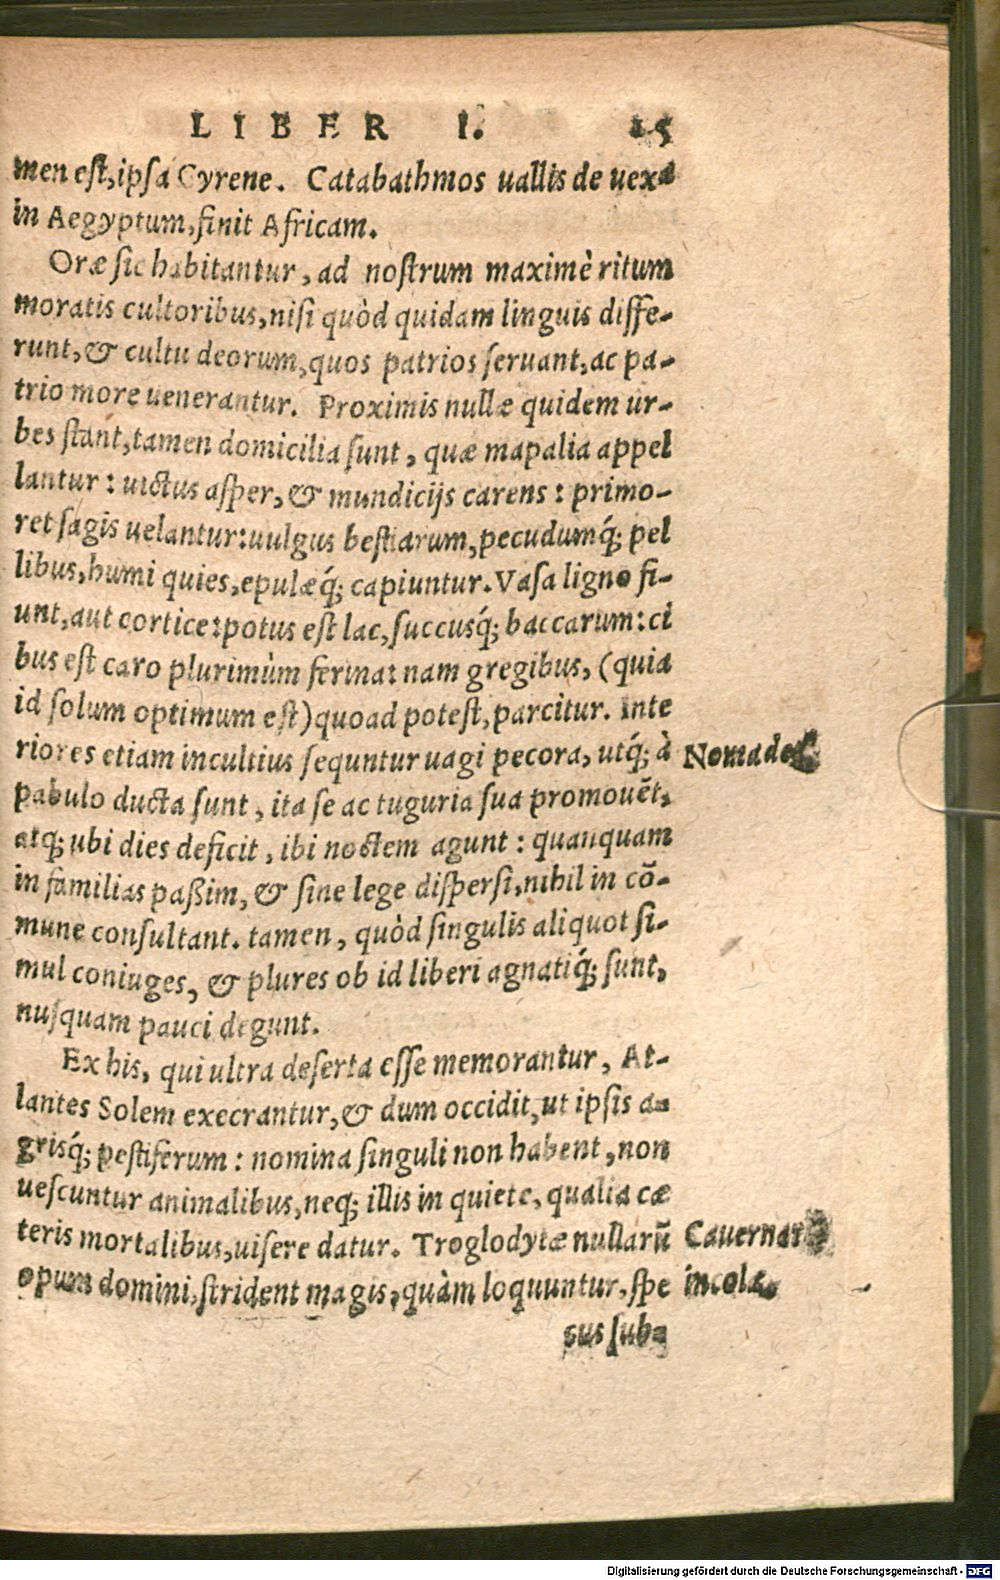 LIBER I. 15
men est, ipsa Cyrene. Catabathmos uallis de uexa
in Aegyptum, finit Africam.
Oræ sic habitantur, ad nostrum maximè ritum
moratis cultoribus, nisi quòd quidam linguis diffe-
runt, & cultu deorum, quos patrios seruant, ac pa-
trio more uenerantur. Proximis nullæ quidem ur-
bes stant, tamen domicilia sunt, quæ mapalia appel
lantur: uictus asper, & mundicijs carens: primo-
res sagis uelantur: uulgus bestiarum, pecudumq́; pel
libus, humi quies, epulæq́; capiuntur. Vasa ligno fi-
unt, aut cortice: potus est lac, succusq́; baccarum: ci
bus est caro plurimùm ferina: nam gregibus, (quia
id solum optimum est) quoad potest, parcitur. Inte
riores etiam incultius sequntur uagi pecora, utq́; à
Nomades
pabulo ducta sunt, ita se ac tuguria sua promouẽt,
atq; ubi dies deficit, ibi noctem agunt: quanquam
in familias paßim, & sine lege dispersi, nihil in cõ-
mune consultant. tamen, quòd singulis aliquot si-
mul coniuges, & plures ob id liberi agnatiq́; sunt,
nusquam pauci degunt.
Ex his, qui ultra deserta esse memorantur, At-
lantes Solem execrantur, & dum occidit, ut ipsis a-
grisq́; pestiferum: nomina singuli non habent, non
uescuntur animalibus, neq; illis in quiete, qualia cæ
teris mortalibus, uisere datur. Troglodytæ nullarũ
opum domini, strident magis, quàm loquuntur, spe
Cauernarũ
incolæ.
cus sub-
Digitalisierung gefördert durch die Deutsche Forschungsgemeinschaft - DFG